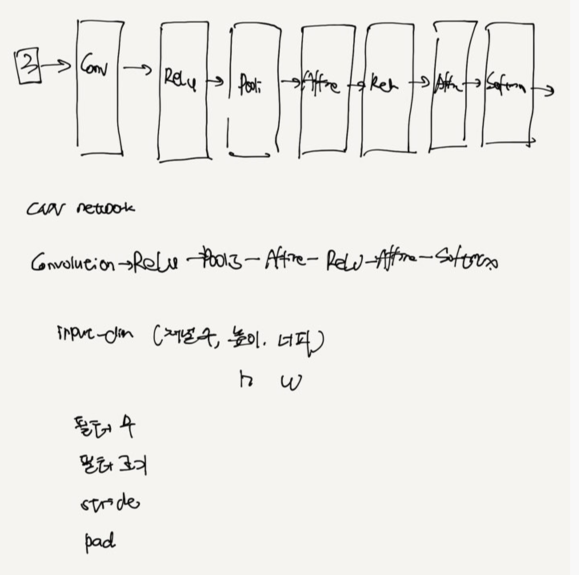 3 → Conv → Relu → Pooli → Affine → Relu → Affin → Softm →
CNN network
Convolution → Relu → Pooling - Affine - Relu → Affine - Softmax
input-dim (채널 수, 높이, 너비)
h w
필터 수
필터 크기
stride
pad